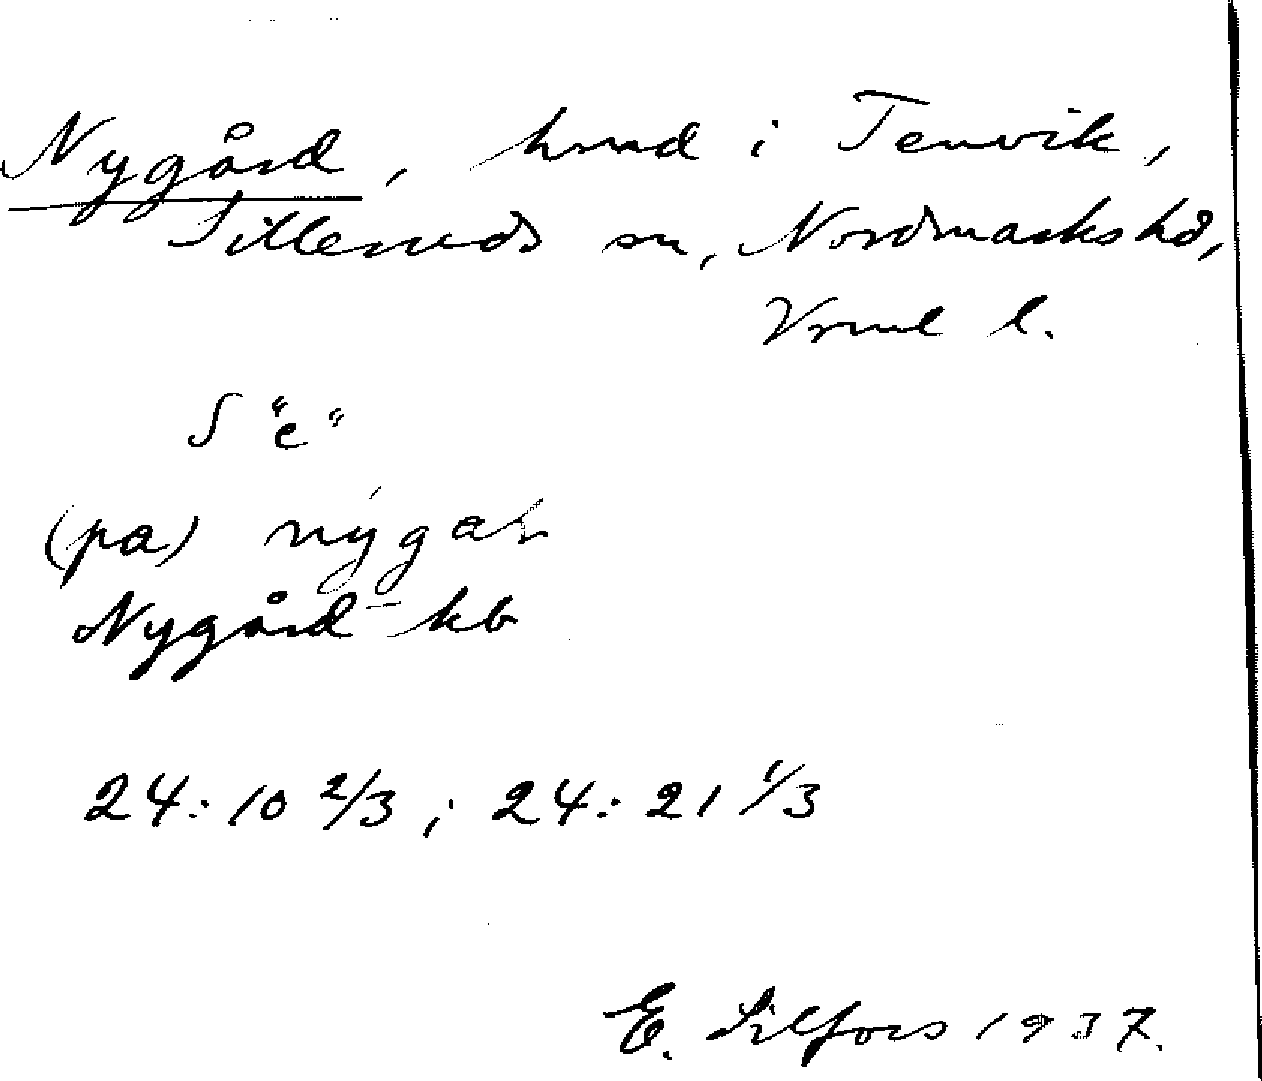 Nygård, hmd i Tenvik,
Silleruds sn, Nordmarks hd,
Vrml l.
S "e"
(pa) nýgaɹ
Nygård - kb
24:10 2/3; 24:21 1/3
E. Silfors 1937.